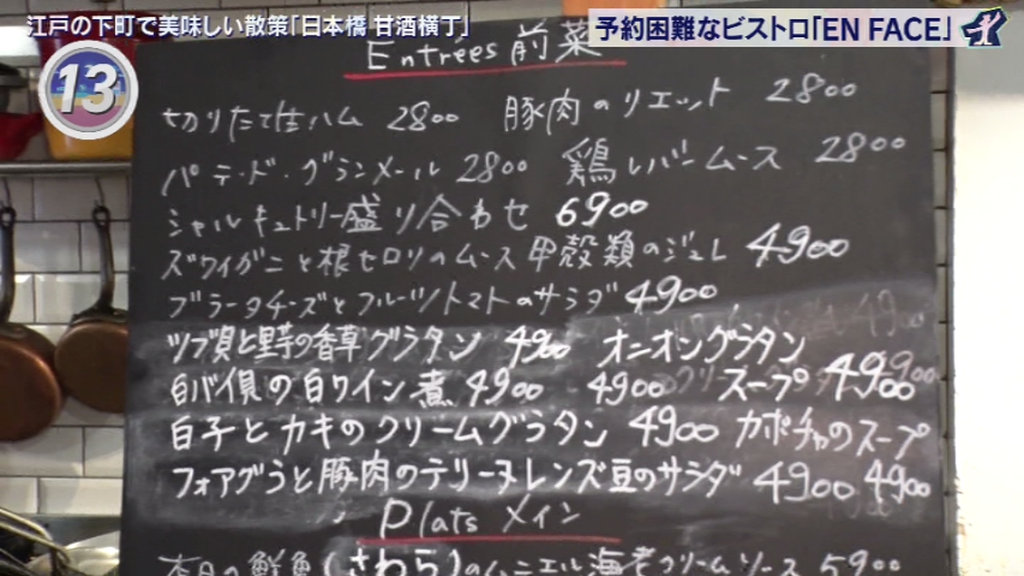 江戸の下町で美味しい散策「日本橋 甘酒横丁」
予約困難なビストロ「EN FACE」
13
Entrées 前菜
切りたて生ハム 2800 豚肉のリエット 2800
パテ・ド・グランメール 2800 鶏レバームース 2800
シャルキュトリー盛り合わせ 6900
ズワイガニと根セロリのムース 甲殻類のジュレ 4900
ブラータチーズとフルーツトマトのサラダ 4900
ツブ貝と里芋の香草グラタン 4900 オニオングラタン
白バイ貝の白ワイン煮 4900 4900 スープ 4900
白子とカキのクリームグラタン 4900 カボチャのスープ
フォアグラと豚肉のテリーヌレンズ豆のサラダ 4900 4900
Plats メイン
本日の鮮魚(さわら)のムニエル海老クリームソース 5900